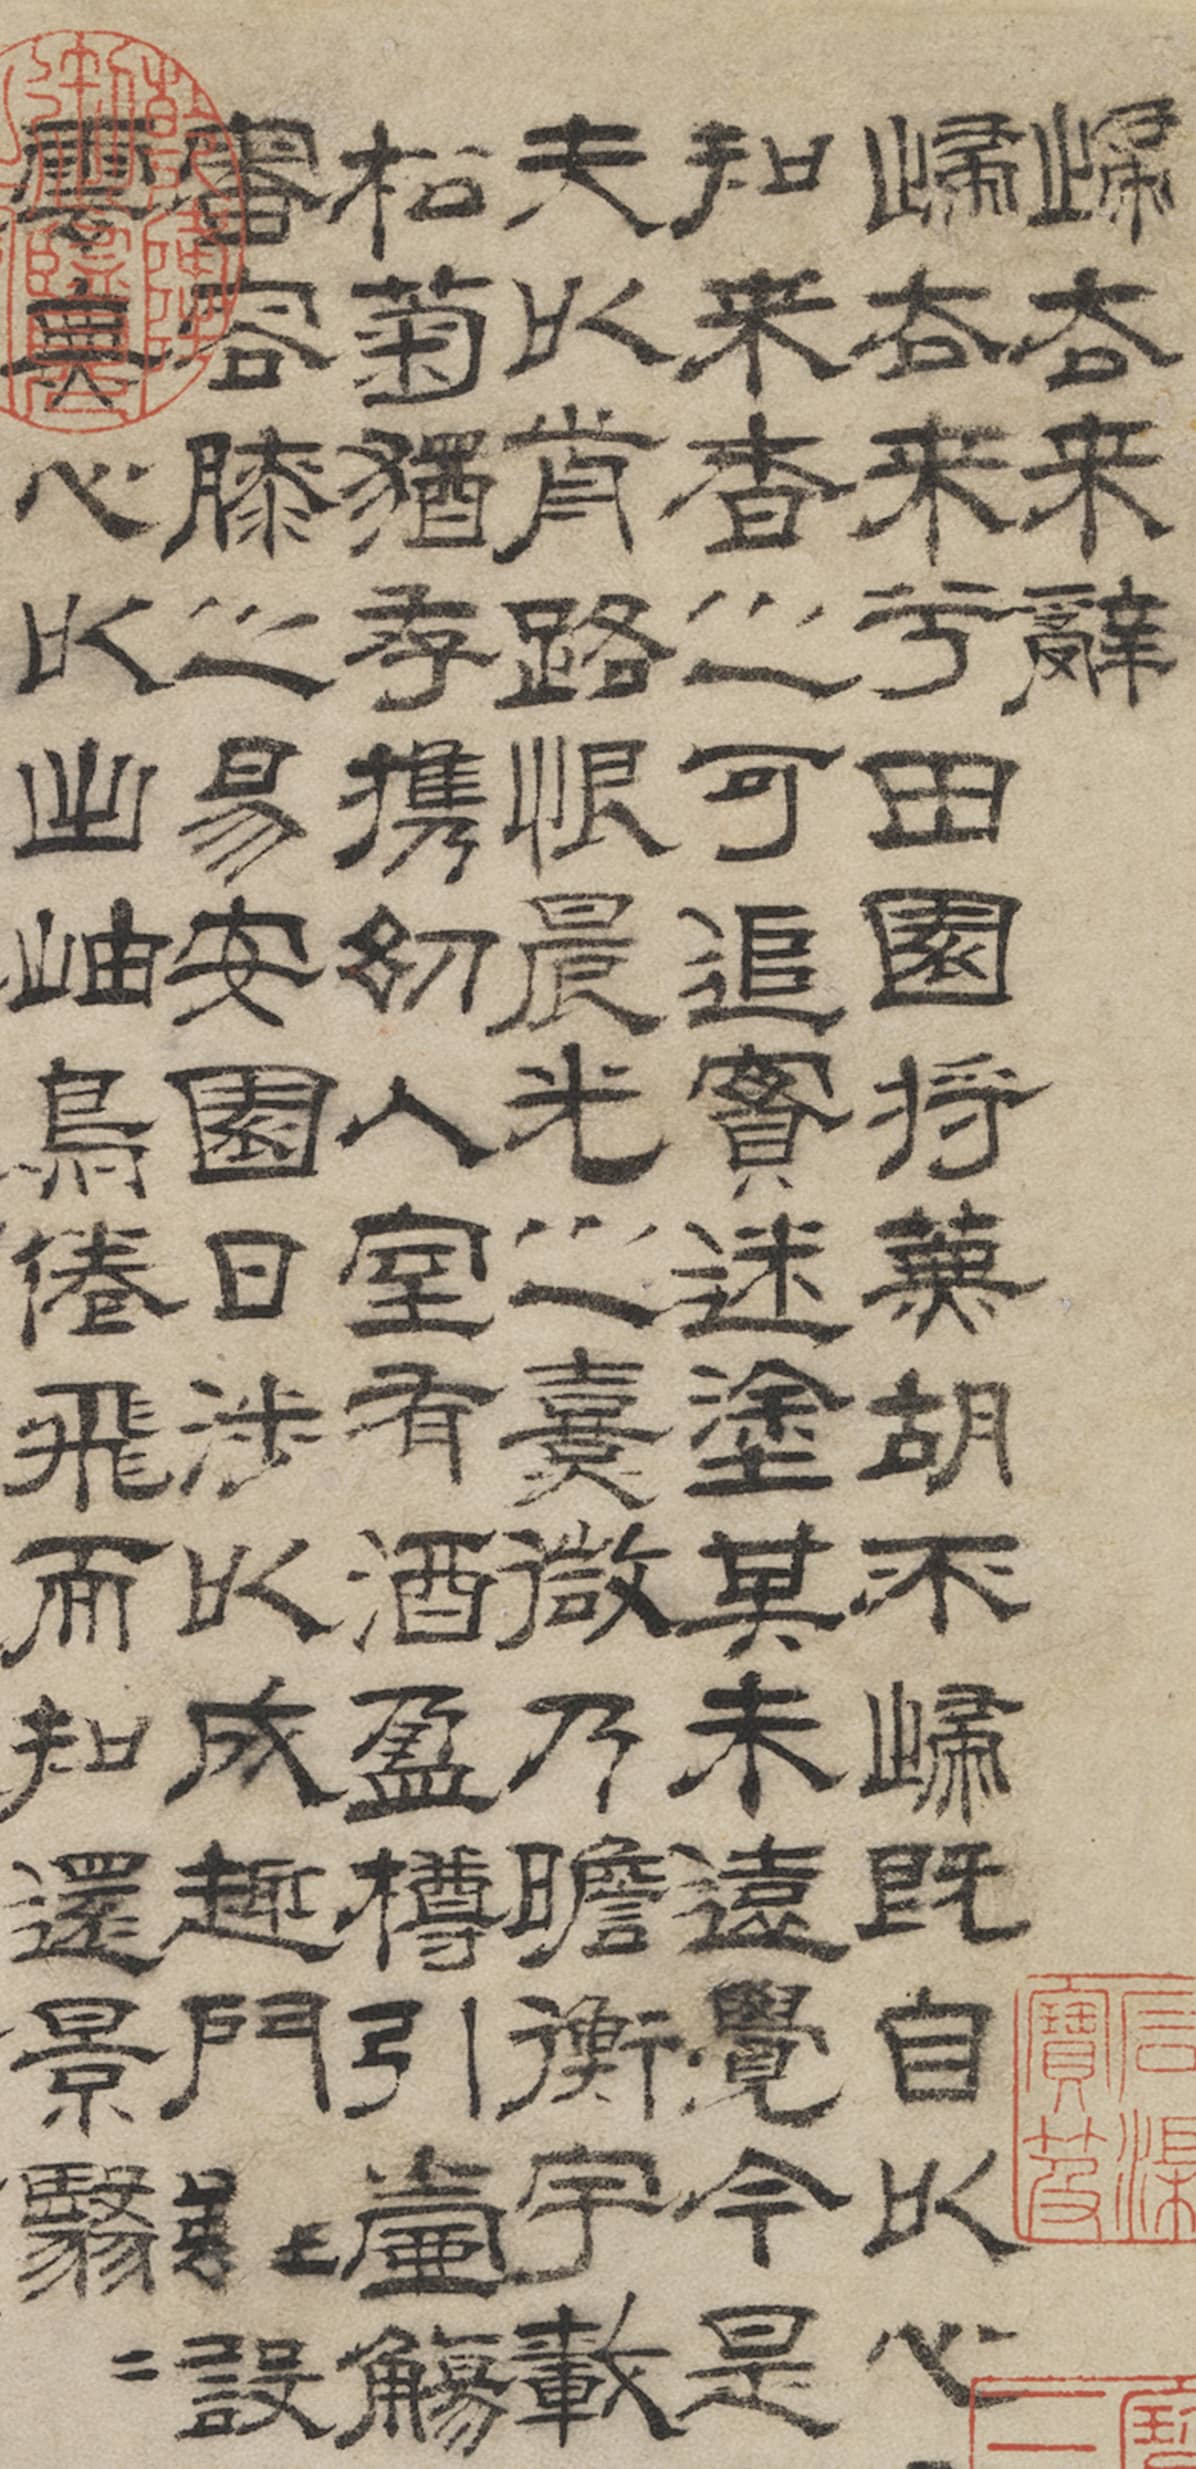 歸去来辭
歸去来兮田園将蕪胡不歸既自以心
知来者之可追實迷塗其未遠覺今是
夫以前路恨晨光之熹微乃瞻衡宇載
松菊猶存携幼入室有酒盈樽引壺觴
審容膝之易安園日涉以成趣門設
雲無心以出岫鳥倦飛而知還景翳〻
石渠寶笈